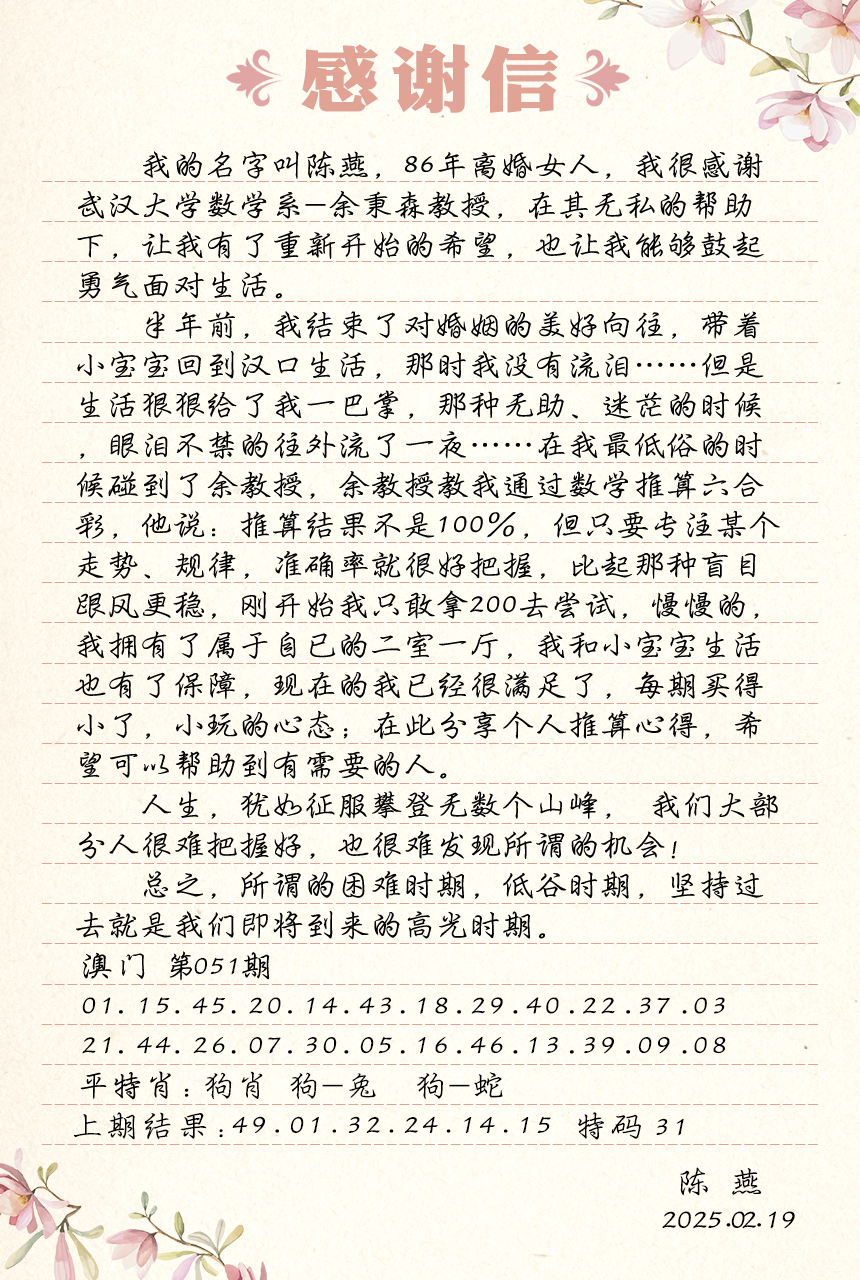 感谢信
我的名字叫陈燕，86年离婚女人，我很感谢
武汉大学数学系-余秉森教授，在其无私的帮助
下，让我有了重新开始的希望，也让我能够鼓起
勇气面对生活。
半年前，我结束了对婚姻的美好向往，带着
小宝宝回到汉口生活，那时我没有流泪……但是
生活狠狠给了我一巴掌，那种无助、迷茫的时候
，眼泪不禁的往外流了一夜……在我最低俗的时
候碰到了余教授，余教授教我通过数学推算六合
彩，他说：推算结果不是100%，但只要专注某个
走势、规律，准确率就很好把握，比起那种盲目
跟风更稳，刚开始我只敢拿200去尝试，慢慢的，
我拥有了属于自已的二室一厅，我和小宝宝生活
也有了保障，现在的我已经很满足了，每期买得
小了，小玩的心态；在此分享个人推算心得，希
望可以帮助到有需要的人。
人生，犹如征服攀登无数个山峰， 我们大部
分人很难把握好，也很难发现所谓的机会！
总之，所谓的困难时期，低谷时期，坚持过
去就是我们即将到来的高光时期。
澳门 第051期
01.15.45.20.14.43.18.29.40.22.37.03
21.44.26.07.30.05.16.46.13.39.09.08
平特肖：狗肖 狗-兔 狗-蛇
上期结果：49.01.32.24.14.15 特码 31
陈 燕
2025.02.19